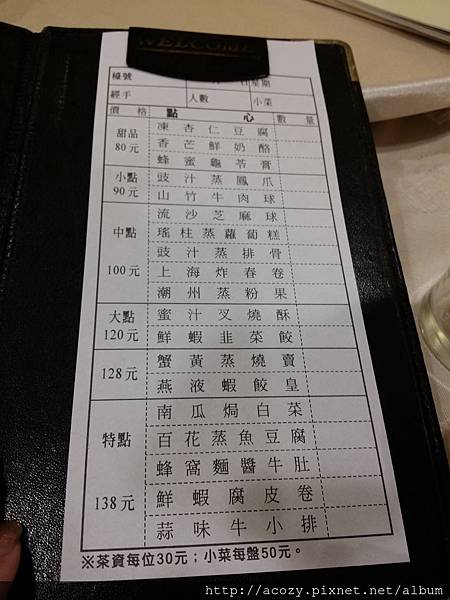 WELCOME
檯號 日 星期
經手 人數 小菜
價格 點心 數量
甜品 80元 凍杏仁豆腐
香芒鮮奶酪
蜂蜜龜苓膏
小點 90元 豉汁蒸鳳爪
山竹牛肉球
中點 100元 流沙芝麻球
瑤柱蒸蘿蔔糕
豉汁蒸排骨
上海炸春卷
潮州蒸粉果
大點 120元 蜜汁叉燒酥
鮮蝦韭菜餃
128元 蟹黃蒸燒賣
燕液蝦餃皇
特點 138元 南瓜焗白菜
百花蒸魚豆腐
蜂窩麵醬牛肚
鮮蝦腐皮卷
蒜味牛小排
※茶資每位30元；小菜每盤50元。
http://acozy.pixnet.net/album